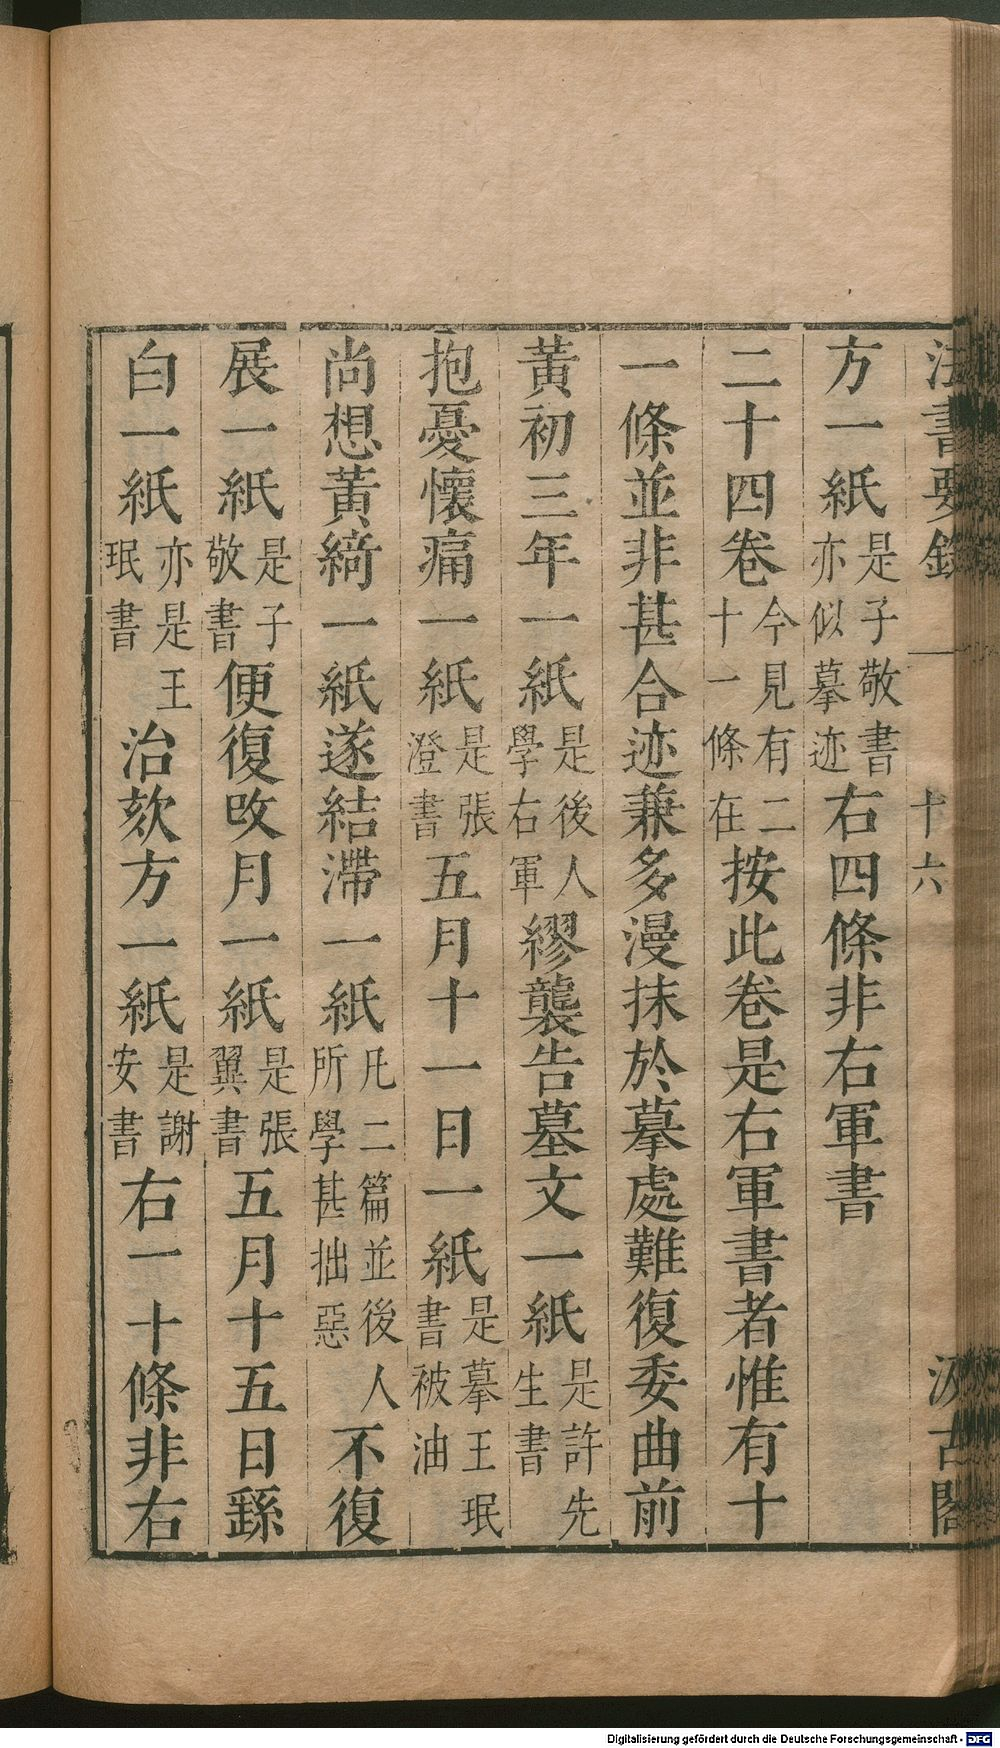 法書要錄
十六
汲古閣
方一紙是子敬書亦似摹迹右四條非右軍書
二十四卷今見有二十一條在按此卷是右軍書者惟有十
一條並非甚合迹兼多漫抹於摹處難復委曲前
黃初三年一紙是後人學右軍繆襲告墓文一紙是許先生書
抱憂懷痛一紙是張澄書五月十一日一紙是摹王珉書被油
尚想黃綺一紙遂結滯一紙凡二篇並後人所學甚拙惡不復
展一紙是子敬書便復改月一紙是張翼書五月十五日繇
白一紙亦是王珉書治欬方一紙是謝安書右一十條非右
Digitalisierung gefördert durch die Deutsche Forschungsgemeinschaft - DFG